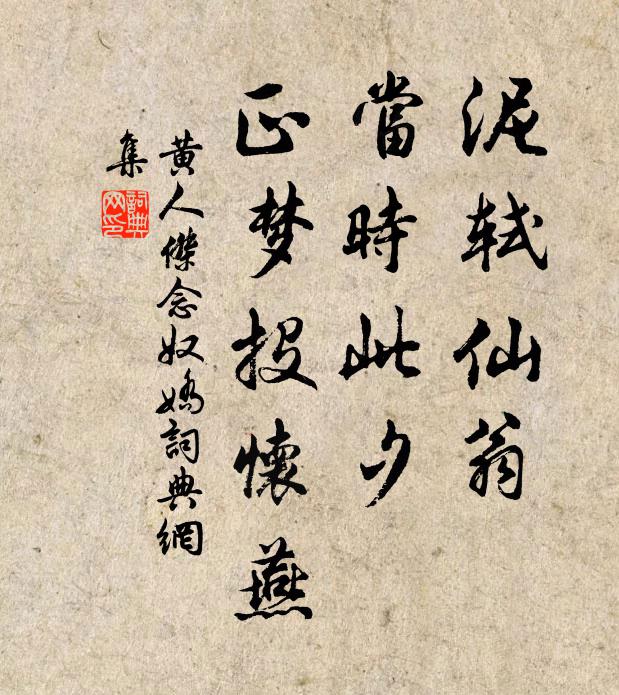 泥轼仙翁
當時此夕
正梦投懷燕
黄人傑念奴嬌詞典網
集
詞典
网印